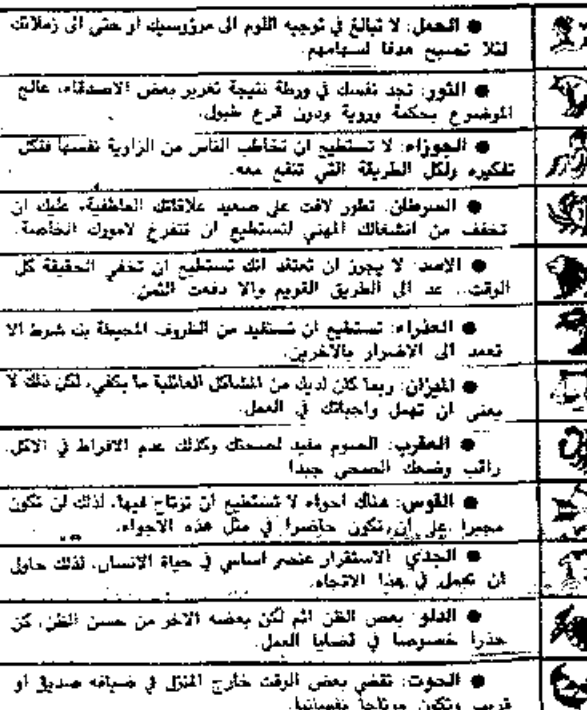 ● الحمل: لا تبالغ في توجيه اللوم الى مرؤوسيك او حتى الى زملائك
لئلا تصبح هدفا لسهامهم.
● الثور: تجد نفسك في ورطة نتيجة تغرير بعض الاصدقاء، عالج
الموضوع بحكمة وروية ودون قرع طبول.
● الجوزاء: لا تستطيع ان تخاطب الناس من الزاوية نفسها فلكل
تفكيره ولكل الطريقة التي تنفع معه.
● السرطان: تطور لافت على صعيد علاقاتك العاطفية، عليك ان
تخفف من انشغالك المهني لتستطيع ان تتفرغ لامورك الخاصة.
● الاسد: لا يجوز ان تعتقد انك تستطيع ان تخفي الحقيقة كل
الوقت.. عد الى الطريق القويم والا دفعت الثمن.
● العذراء: تستطيع ان تستفيد من الظروف المحيطة بك شرط الا
تعمد الى الاضرار بالآخرين.
● الميزان: ربما كان لديك من المشاكل العائلية ما يكفي، لكن ذلك لا
يعني ان تهمل واجباتك في العمل.
● العقرب: الصوم مفيد لصحتك وكذلك عدم الافراط في الاكل.
راقب وضعك الصحي جيدا
● القوس: هناك اجواء لا تستطيع ان ترتاح فيها، لذلك لن تكون
مجبرا على ان تكون حاضرا في مثل هذه الاجواء.
● الجدي: الاستقرار عنصر اساسي في حياة الانسان، لذلك حاول
ان تعمل في هذا الاتجاه.
● الدلو: بعض الظن اثم لكن بعضه الآخر من حسن الفطن، كن
حذرا خصوصا في قضايا العمل.
● الحوت: تقضي بعض الوقت خارج المنزل في ضيافة صديق او
قريب وتكون مرتاحا نفسانيا.